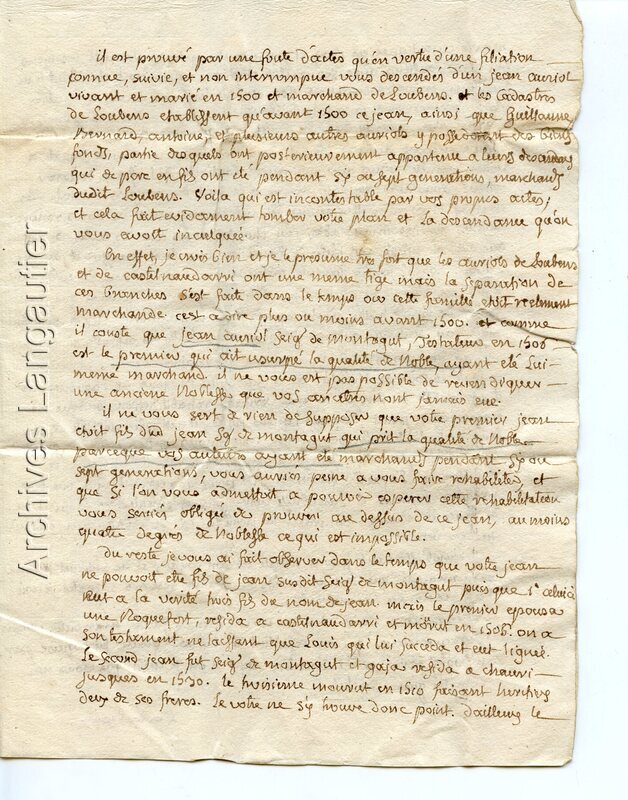 il est prouvé par une foule d'actes qu'en vertu d'une filiation
connue, suivie, et non interrompue vous descendés d'un jean auriol
vivant et marié en 1500 et marchand de Loubens. et les Cadastres
de Loubens etablissent qu'avant 1500 ce jean, ainsi que Guillaume
Bernard, antoine, et plusieurs autres auriols y possedoient des biens
fonds, partie desquels ont posterieurement appartenu a leurs descendans
qui de pere en fils ont eté pendant six ou sept generations, marchands
dudit Loubens. Voila qui est incontestable par vos propres actes;
et cela fait evidament tomber votre plan et La descendance qu'on
vous avoit inculqué.
En effet, je crois bien et je le presume tres fort que les auriols de Loubens
et de castelnaudarri ont une meme tige mais la separation de
ces branches s'est faite dans le temps ou cette famille etoit reelement
marchande c'est a dire plus ou moins avant 1500. et comme
il conste que jean auriol seigr de montagut, Testateur en 1506
est le premier qui ait usurpé la qualité de Noble, ayant eté lui-
meme marchand il ne vous est pas possible de revendiquer
une anciene Noblesse que vos ancetres n'ont jamais eue.
il ne vous sert de rien de supposer que votre premier jean
etoit fils d'un jean Sgr de montagut qui prit la qualité de Noble
parceque vos auteurs ayant eté marchands pendant six ou
sept generations, vous auriés peine a vous faire rehabiliter, et
que si l'on vous admettoit a pouvoir esperer cette rehabilitation
vous seriés obligé de prouver au dessus de ce jean, au moins
quatre degrés de Noblesse ce qui est impossible.
Du reste je vous ai fait observer dans le temps que votre jean
ne pouvoit etre fils de jean susdit Seigr de montagut puis que 1° celui ci
eut a la verité trois fils du nom de jean. mais le premier epousa
une Roquefort, resida a castelnaudarri et mourut en 1506. on a
son testament ne laissant que Louis qui lui succeda et eut lignée.
Le second jean fut seigr de montagut et gaja resida a chauri
jusques en 1530. le troisieme mourut en 1510 faisant heritiers
deux de ses freres. Le votre ne s'y trouve donc point. d'ailleurs le
Archives Langautier